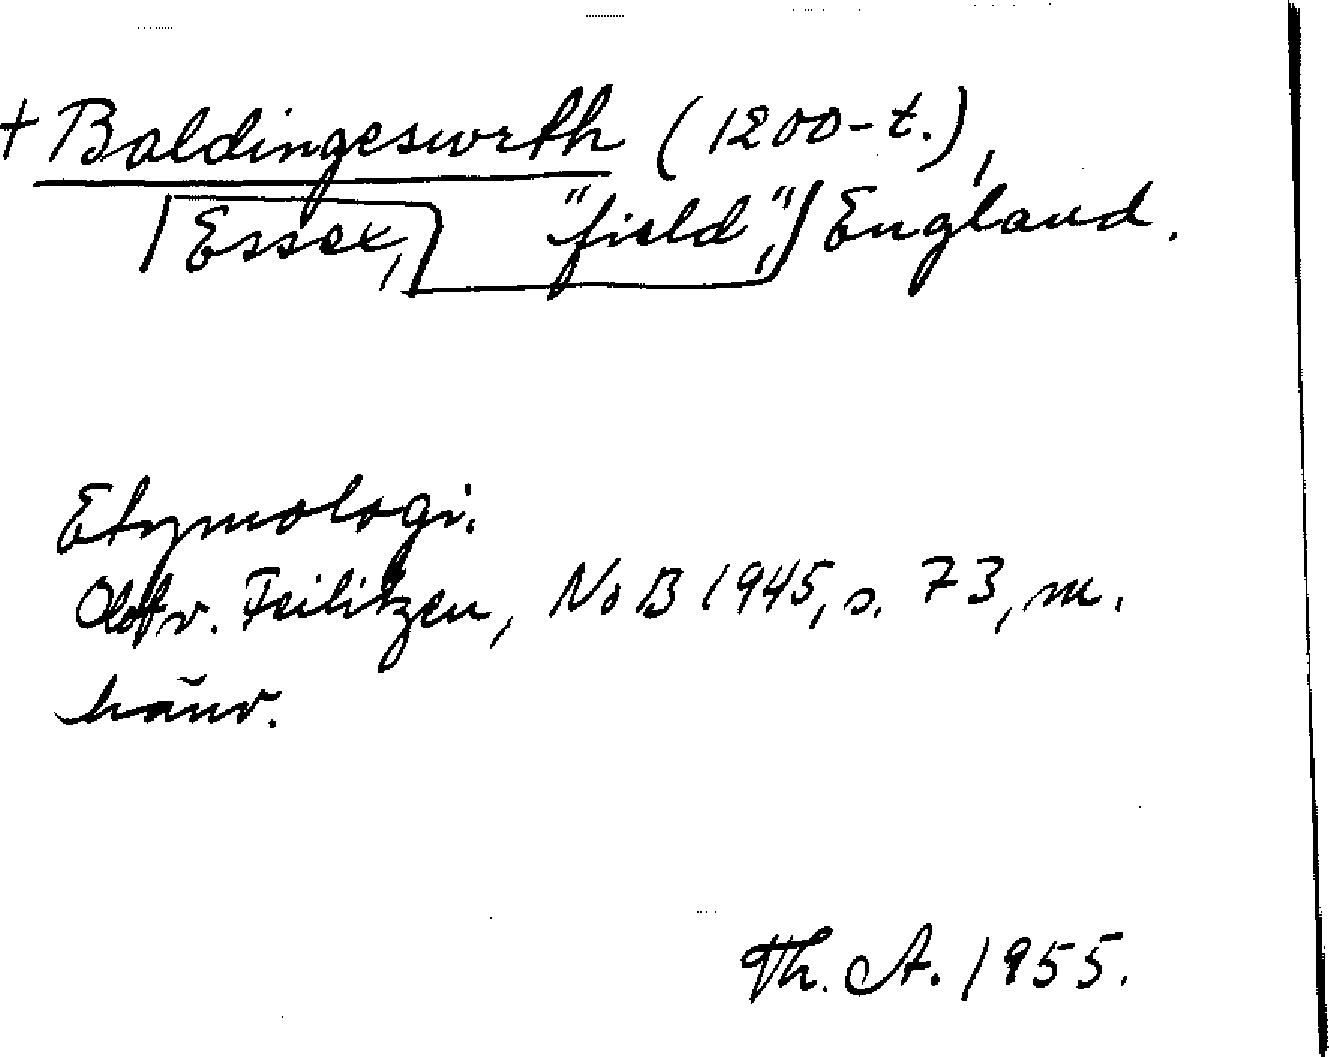 + Baldingeswrth (1200-t.),
Essex, "field", England.
Etymologi.
Olof v. Feilitzen, NoB 1945, s. 73, m.
hänv.
Th. A. 1955.